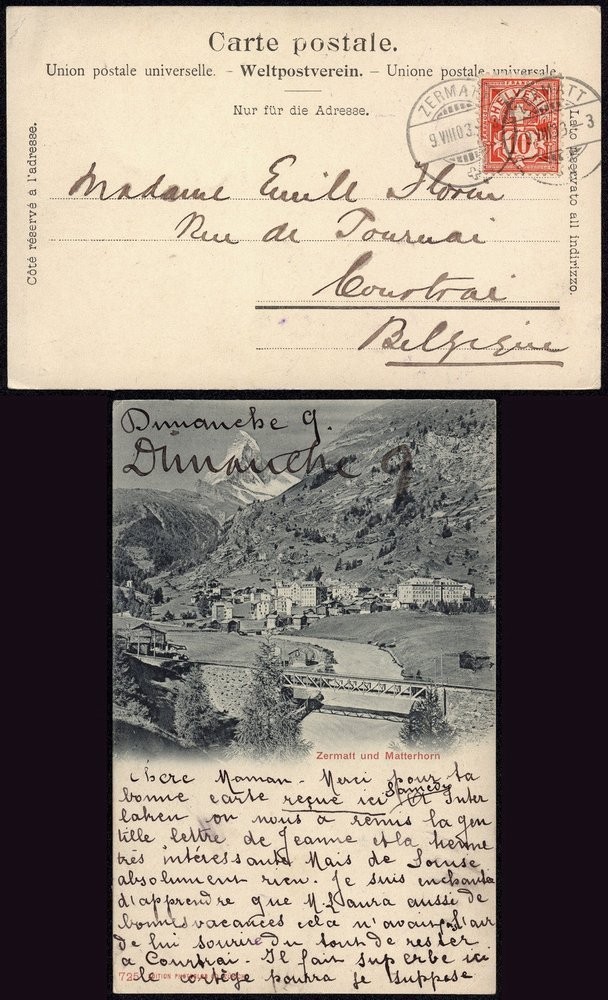 Carte postale.
Union postale universelle. - Weltpostverein. - Unione postale universale.
Nur für die Adresse.
Côté réservé à l'adresse.
Lato riservato all indirizzo.
ZERMATT
9.VIII.03
HELVETIA
10
Madame Emile Florin
Rue de Tournai
Courtrai
Belgique
Dimanche 9.
Dimanche 9
Zermatt und Matterhorn
Chere Maman - Merci pour ta
Samedi
bonne carte reçue ici A Inter
laken on nous a remis la gen
tille lettre de Jeanne et la
très intéressante Mais de Louise
absolument rien. Je suis enchanté
d'apprendre que M Laura aussi de
bonnes vacances cela n'avait l'air
de lui sourire du tout de rester
a Courtrai - Il fait superbe ici
le cortège pourra je suppose
725